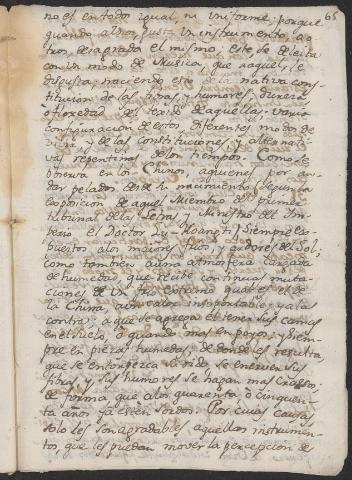 65
no es en todos igual, ni uniforme; porque
quando à unos gusta un instrumento, à o
tros, desagrada el mismo; este se deleita
con un modo de Musica, que aaquel, le
disgusta, naciendo esto de la nativa cons-
titucion de las fibras, y humores, dureza
ò floxedad del de aquellas, varia
configuracion de estos, diferentes modos de
vivir, y de las Constituciones, y alternati-
vas repentinas de los tiempos. Como se
observa en los Chinos, aquienes por an-
dar pelados desde su nacimiento, segun la
exposicion de aquel Miembro del primer
tribunal de las Letras, y Ministro del Im-
perio el Doctor Lu-Hoangti; Siempre es-
puestos alos maiores frios, y ardores del Sol,
como tambien auna atmosfera cargada
de humedad, que recibe continuas muta-
ciones de un frio extremo qual es el de
la China, aun calor insoportable; y ala
contra; à que se agrega el tener sus camas
en el suelo, ò quando mas en poyos; y siem-
pre en piezas humedas, de donde les resulta,
que se entorpezca su oido, se enerven sus
fibras, y sus humores se hagan mas crasos:
de forma, que alos quarenta, ò cinquen-
ta años ya esten sordos. Por cuias causas
solo les son agradables aquellos instrumen-
tos, que les puedan mover la percepcion de